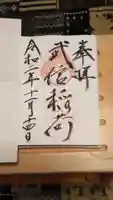 奉拝
武信稲荷
令和二年十一月十四日